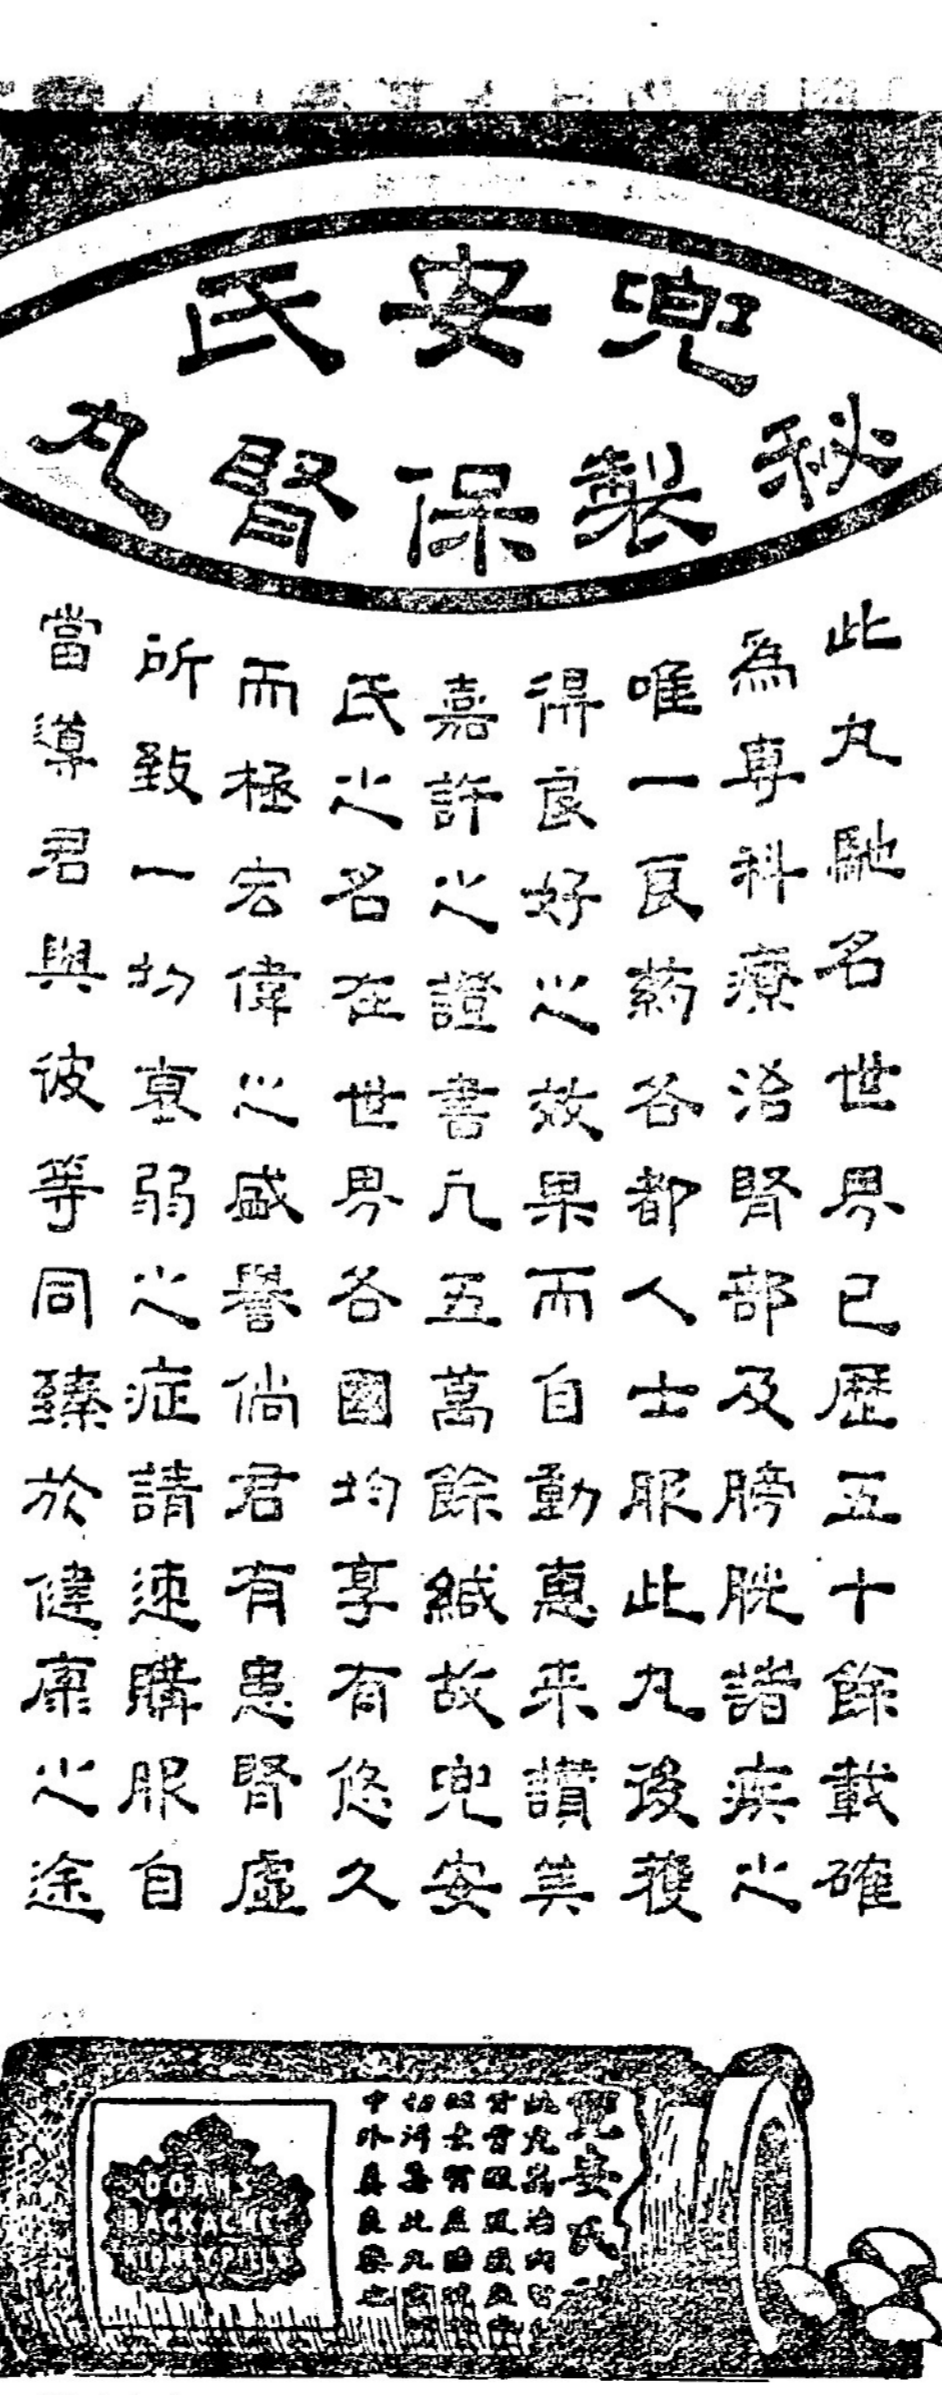 兜安氏
秘製保腎丸
此丸馳名世界已歷五十餘載確
為專科療治腎部及膀胱諸疾之
唯一良药各都人士服此丸後獲
得良好之效果而自動惠来讃美
嘉許之證書凡五萬餘緘故兜安
氏之名在世界各國均享有悠久
而極宏偉之盛譽倘君有患腎虛
所致一切衰弱之症請速購服自
當導君與彼等同臻於健康之途
兜安氏
DOAN'S
BACKACHE
KIDNEY PILLS